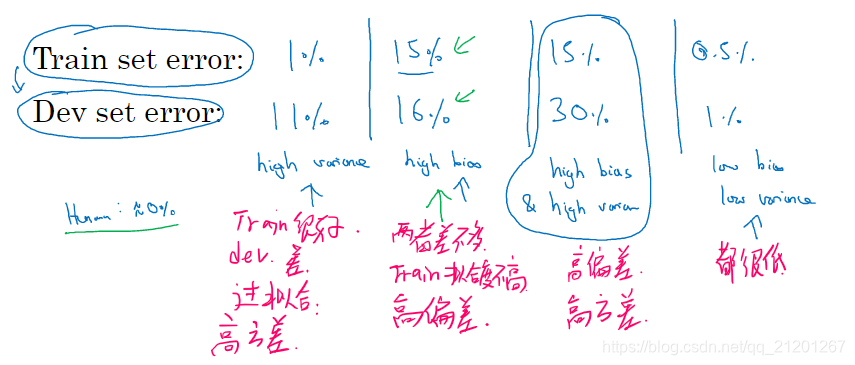 Train set error: 1% 15% 15% 0.5%
Dev set error: 11% 16% 30% 1%
high variance high bias high bias & high varian low bias low variance
Human: ≈0%
Train很好.
dev. 差.
过拟合.
高方差.
两者差不多
Train拟合度不高
高偏差.
高偏差.
高方差.
都很低
https://blog.csdn.net/qq_21201267